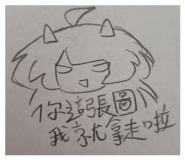 你這張圖
我就拿走啦